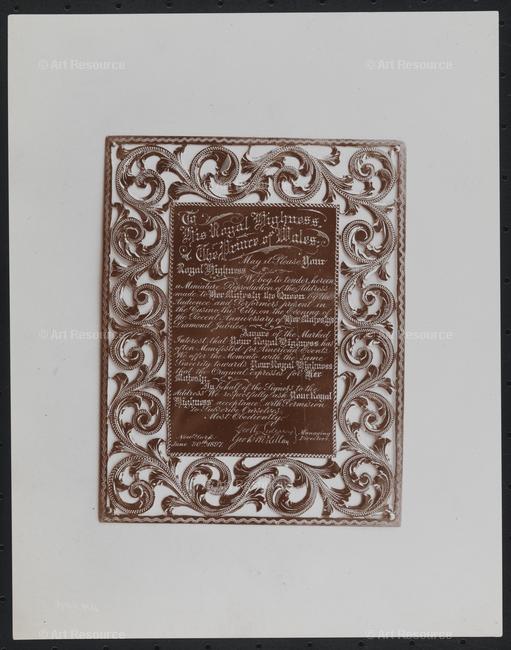 © Art Resource
© Art Resource
© Art Resource
To
His Royal Highness
The Prince of Wales.
May it Please Your
Royal Highness
We beg to tender, herein
a Miniature Reproduction of the Address
made to Her Majesty the Queen by the
Audience and Performers present in
the Casino, this City, on the Evening of
the Recent Anniversary of Her Majesty's
Diamond Jubilee.
Aware of the Marked
Interest that Your Royal Highness has
ever Manifested for American Events
We offer the Memento with the same
sincerity towards Your Royal Highness
that the Original Expressed for Her
Majesty.
On behalf of the Signers to the
Address We respectfully ask Your Royal
Highness' acceptance with Permission
to Subscribe Ourselves
Most Obediently
Geo W. Lederer
Geo B. McLellan
Managing
Directors
New York
June 30th 1897.
© Art Resource
© Art Resource
© Art Resource